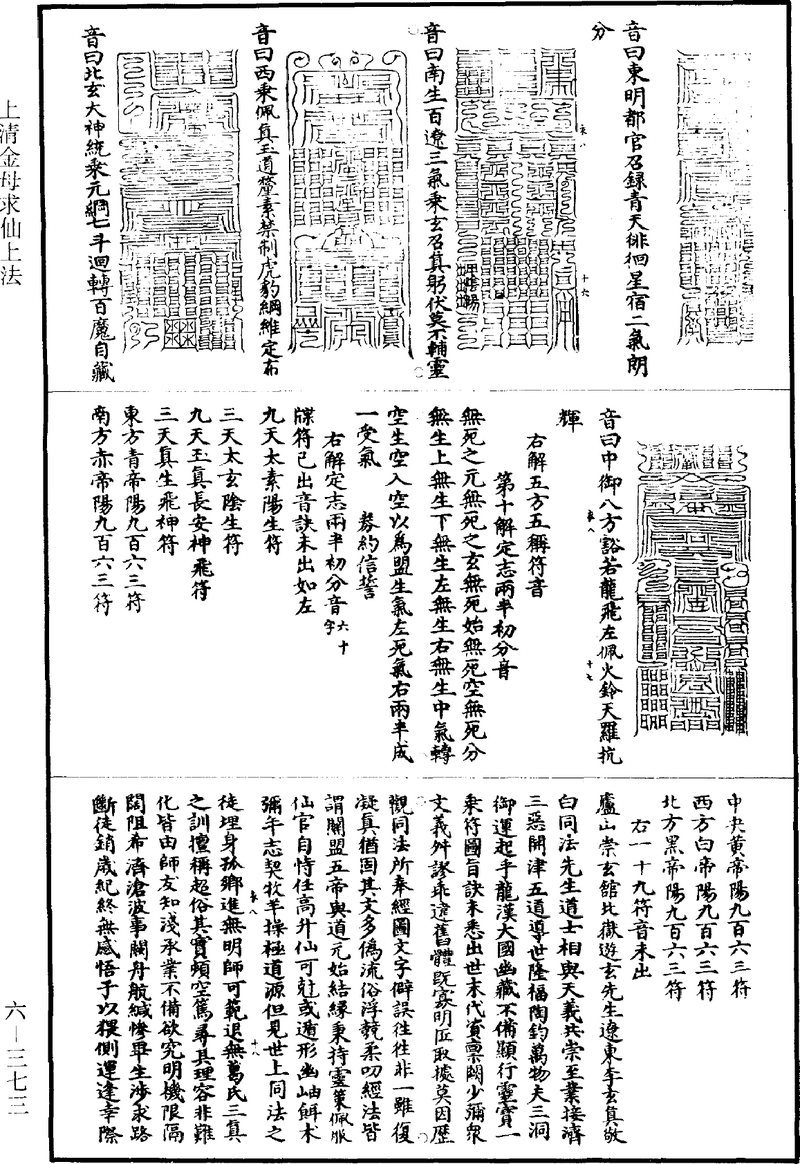 音曰東明都官召録青天徘徊星宿二氣朗
分
音曰南生百遼三氣乘玄召真躬伏莫不輔靈
音曰西乘佩真玉道摩素禁制虎豹綱維定布
音曰北玄大神統乘元綱七斗迴轉百魔自藏
音曰中御八方豁若龍飛左佩火鈴天羅抗
輝
右解五方五稱符音
第十解定志兩半初分音
無死之元無死之玄無死始無死空無死分
無生上無生下無生左無生右無生中氣轉
空生空入空以為盟生氣左死氣右兩半成
一受氣 券約信誓
右解定志兩半初分音六十字
牒符已出音訣未出如左
九天太素陽生符
三天太玄陰生符
九天玉真長安神飛符
三天真生飛神符
東方青帝陽九百六三符
南方赤帝陽九百六三符
中央黄帝陽九百六三符
西方白帝陽九百六三符
北方黑帝陽九百六三符
右一十九符音未出
廬山崇玄館北嶽遊玄先生遼東李玄真敬
白同法先生道士相與天義共崇至業接濟
三惡開津五道導世隆福陶鈞萬物夫三洞
御運起乎龍漢大國幽藏不備顯行靈寶一
乘符圖旨訣未悉出世末代資稟闕少彌衆
文義舛謬乖違舊體既寡明匠取據莫因歷
觀同法所奉經圖文字僻誤往往非一雖復
凝真猶固其文多偽流俗浮競柔叨經法皆
謂關盟五帝與道元始結緣秉持靈策佩服
仙官自恃任高升仙可尅或遁形幽岫餌术
彌年志契牧羊操極道源但見世上同法之
徒埋身孤鄉進無明師可範退無葛氏三真
之訓擅稱超俗其實頻空篤尋其理容非難
化皆由師友知淺承業不備欲究明機限隔
闊阻希濟滄波事關舟航緘慘畢生涉求路
斷徒銷歲紀終無感悟予以猥側運逢幸際
上清金母求仙上法
六—三七三